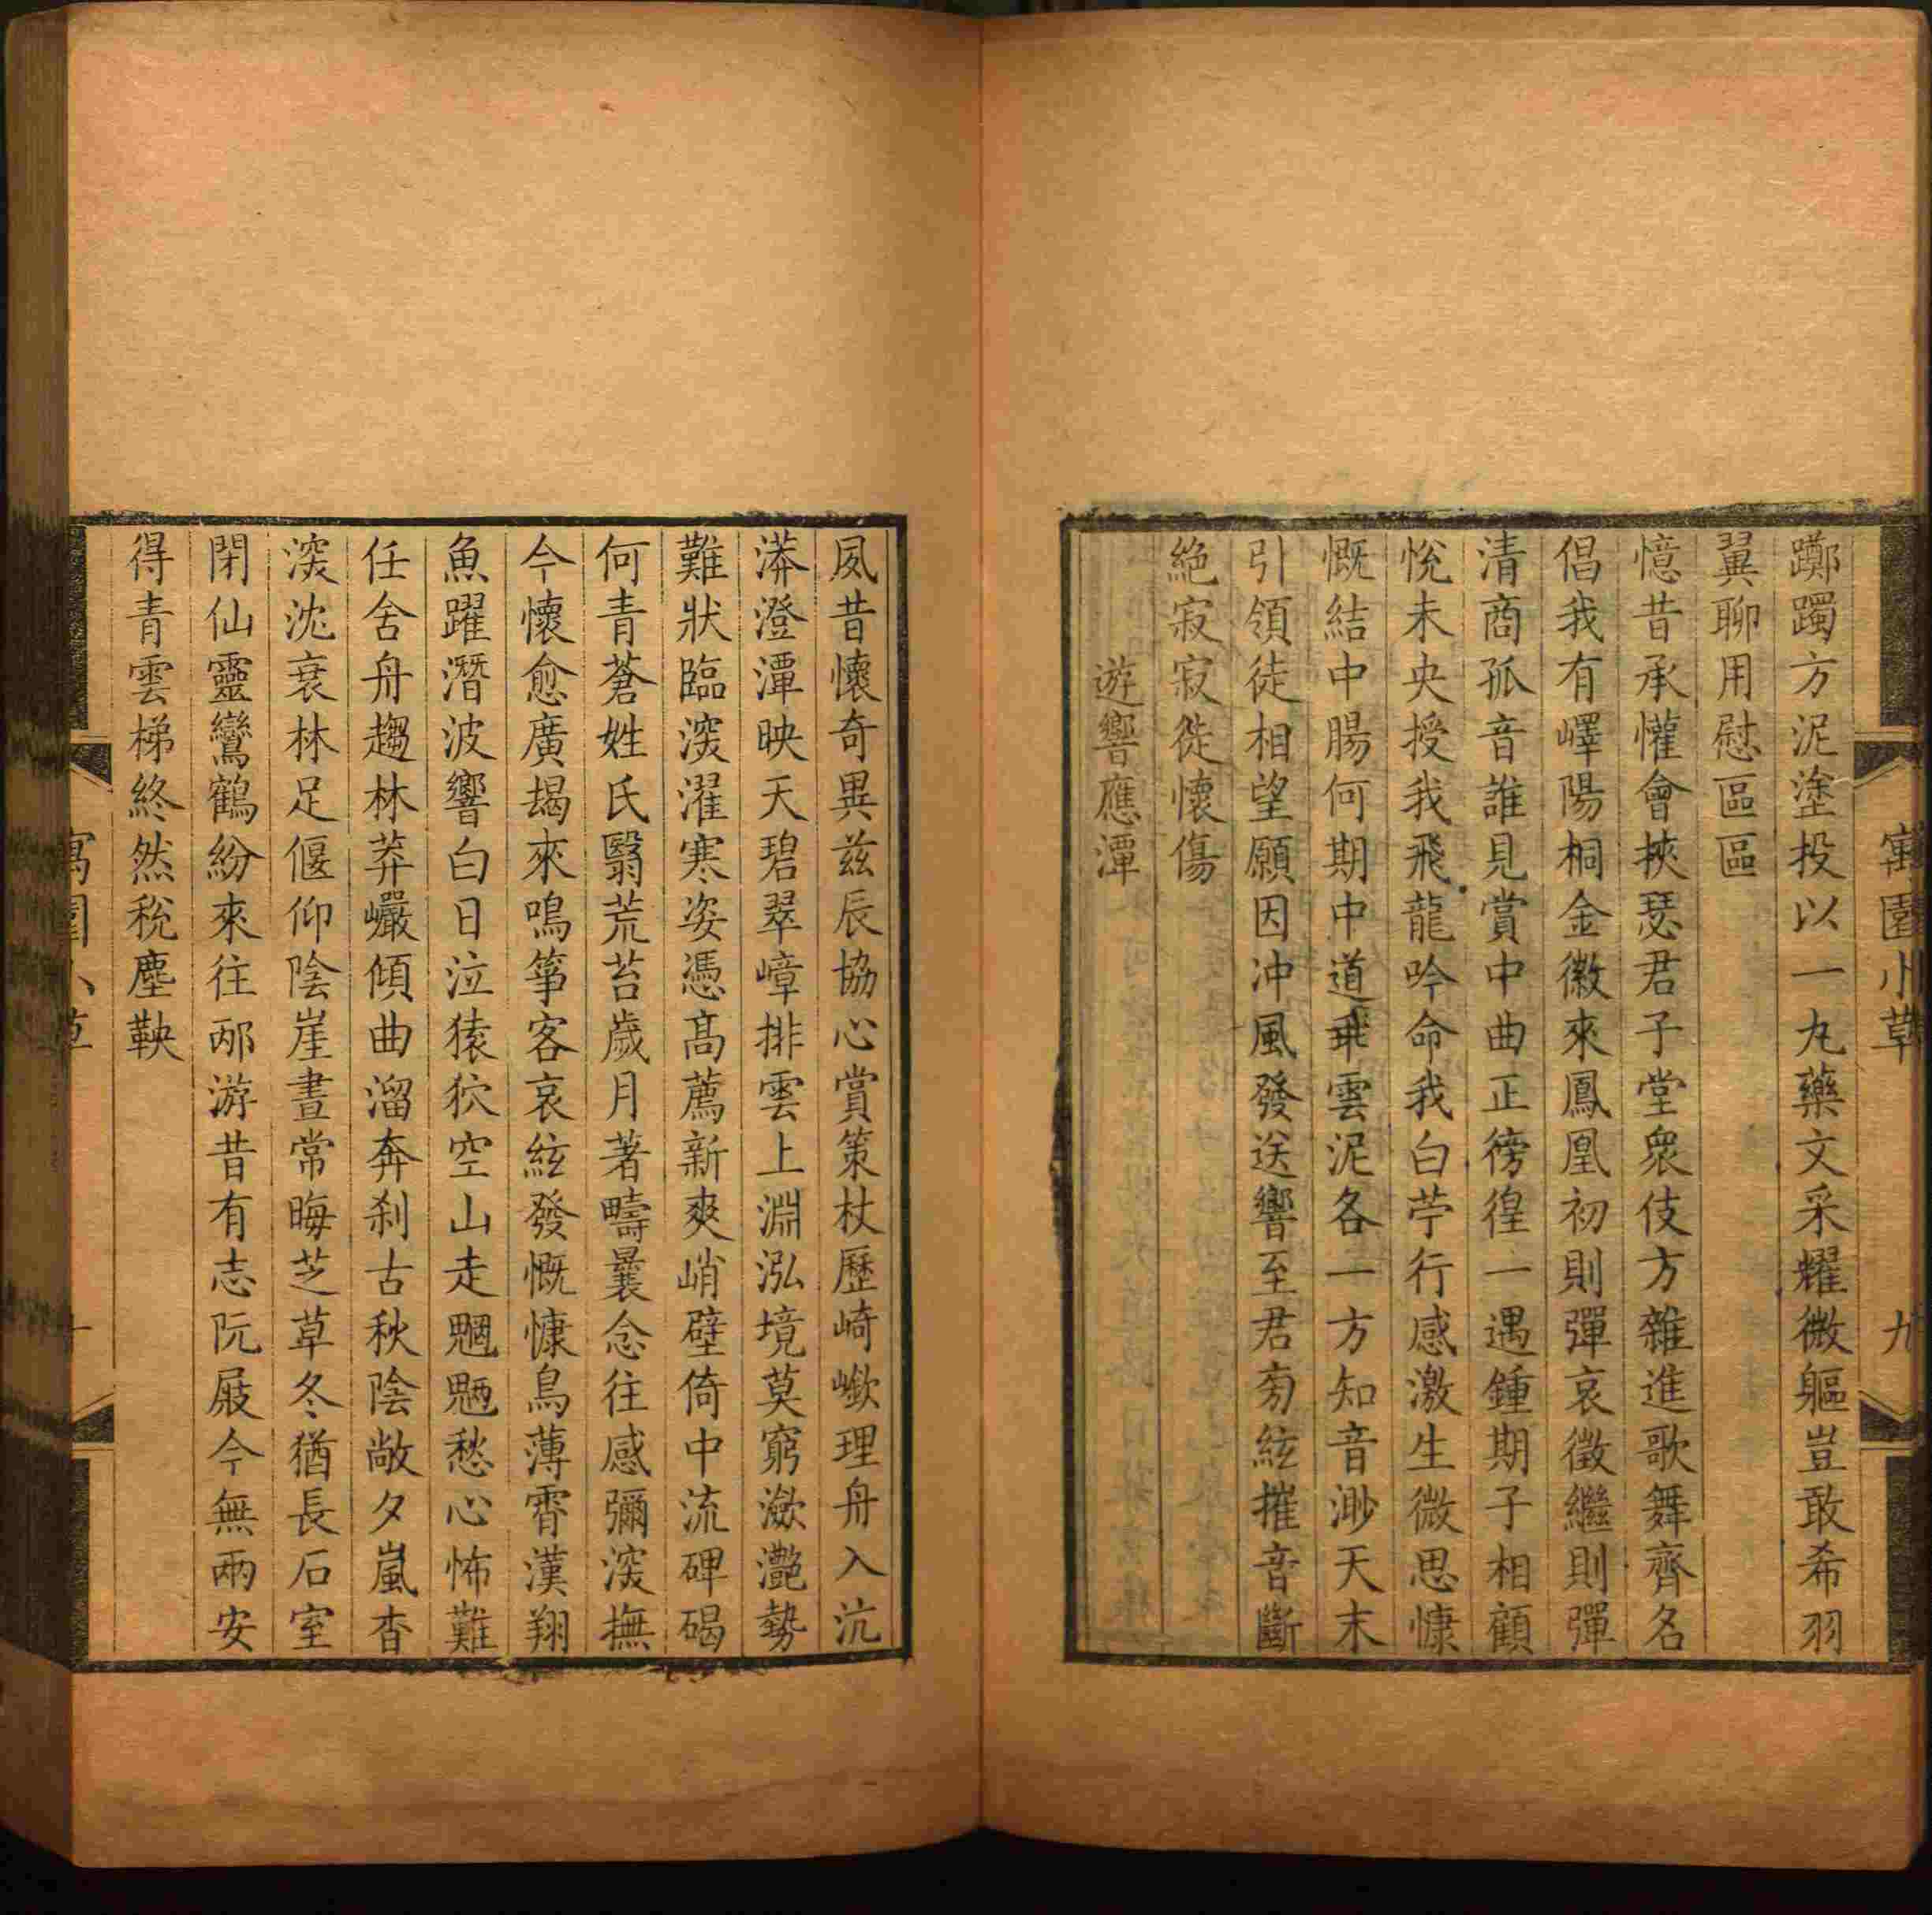 寓園小草
九
躑躅方泥塗投以一九藥文采耀微軀豈敢希羽
翼聊用慰區區
憶昔承懽會挾瑟君子堂衆伎方雜進歌舞齊名
倡我有嶧陽桐金徽來鳳凰初則彈哀徵繼則彈
清商孤音誰見賞中曲正徬徨一遇鍾期子相顧
悅未央授我飛龍吟命我白苧行感激生微思慷
慨結中腸何期中道乖雲泥各一方知音渺天末
引領徒相望願因冲風發送響至君旁絃摧音斷
絶寂寂徙懷傷
遊響應潭
夙昔懷奇異茲辰協心賞策杖歷崎嶔理舟入沆
漭澄潭映天碧翠嶂排雲上淵泓境莫窮瀲灔勢
難狀臨㴱濯寒姿憑高薦新爽峭壁倚中流碑碣
何青蒼姓氏翳荒苔歲月著疇曩念往感彌㴱撫
今懷愈廣朅來鳴箏客哀絃發慨慷鳥薄霄漢翔
魚躍潛波響白日泣猿狖空山走魍魎愁心怖難
任舍舟趨林莽巖傾曲溜奔刹古秋陰敞夕嵐杳
㴱沈衰林足偃仰陰崖晝常晦芝草冬猶長石室
閉仙靈鸞鶴紛來往邴游昔有志阮屐今無兩安
得青雲梯終然稅塵鞅